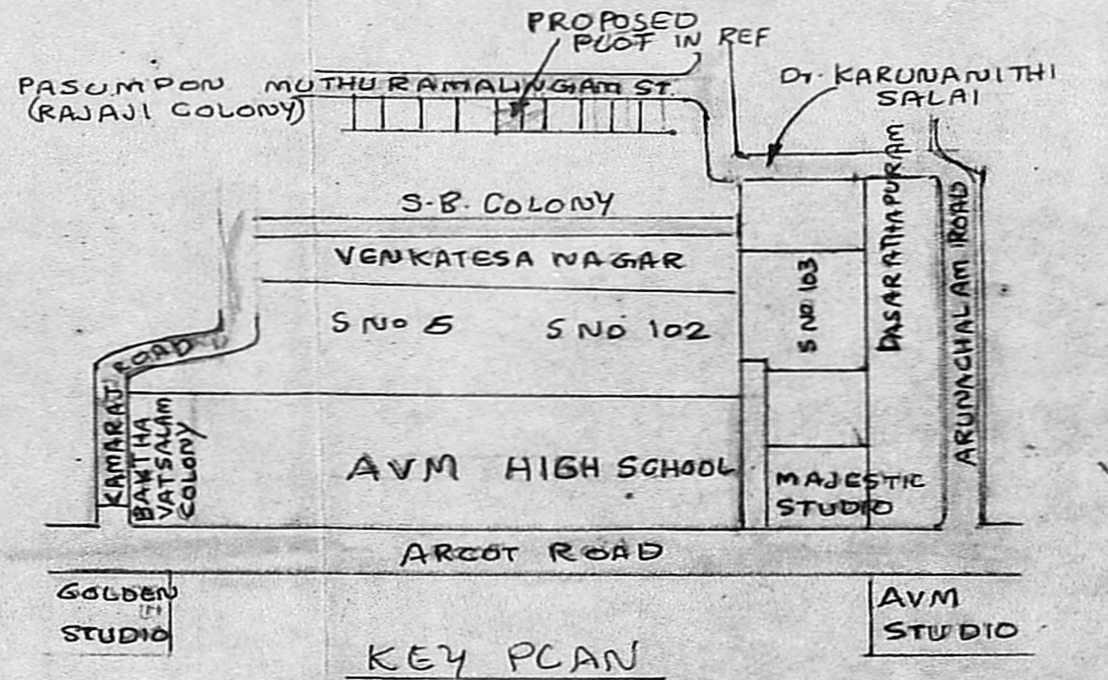 PROPOSED
PLOT IN REF
PASUMPON MUTHURAMALINGAM ST.
(RAJAJI COLONY)
Dr. KARUNANITHI
SALAI
S.B. COLONY
VENKATESA NAGAR
S NO 5
S NO 102
S NO 103
DASARATHAPURAM
ARUNACHALAM ROAD
KAMARAJ ROAD
BAKTHA
VATSALAM
COLONY
AVM HIGH SCHOOL
MAJESTIC
STUDIO
ARCOT ROAD
GOLDEN
STUDIO
AVM
STUDIO
KEY PLAN